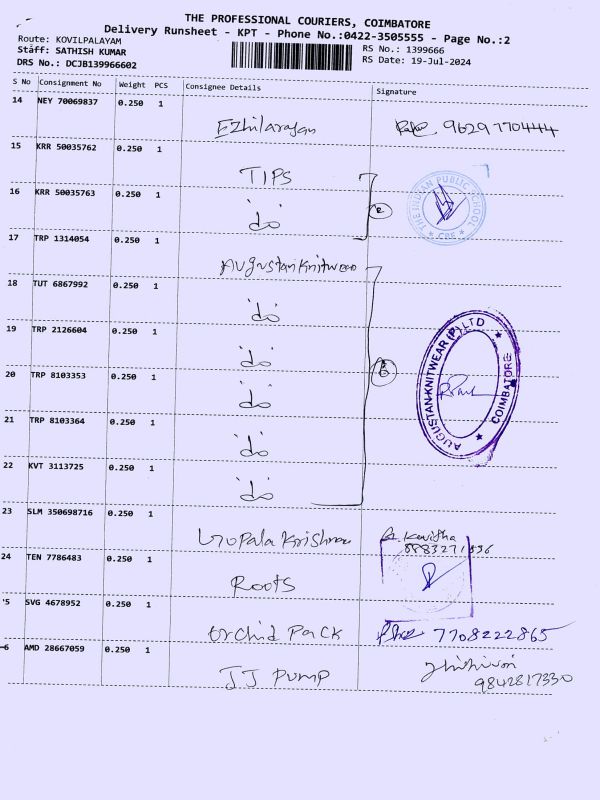 THE PROFESSIONAL COURIERS, COIMBATORE
Delivery Runsheet - KPT - Phone No.:0422-3505555 - Page No.:2
Route: KOVILPALAYAM
Staff: SATHISH KUMAR
DRS No.: DCJB139966602
RS No.: 1399666
RS Date: 19-Jul-2024
S No Consignment No Weight PCS Consignee Details Signature
14 NEY 70069837 0.250 1 Ezhilarasan 9629770444
15 KRR 50035762 0.250 1 TIPS
16 KRR 50035763 0.250 1 do
THE INDIAN PUBLIC SCHOOL
CBE
17 TRP 1314054 0.250 1 Augustan Knitwear
18 TUT 6867992 0.250 1 do
19 TRP 2126604 0.250 1 do
20 TRP 8103353 0.250 1 do
6
21 TRP 8103364 0.250 1 do
22 KVT 3113725 0.250 1 do
AUGUSTAN KNITWEAR (P) LTD
COIMBATORE
23 SLM 350698716 0.250 1 Gopala Krishnan Kavitha
24 TEN 7786483 0.250 1 Roots
'5 SVG 4678952 0.250 1 Orchid Pack 7708222865
6 AMD 28667059 0.250 1 JJ Pump
9842817330